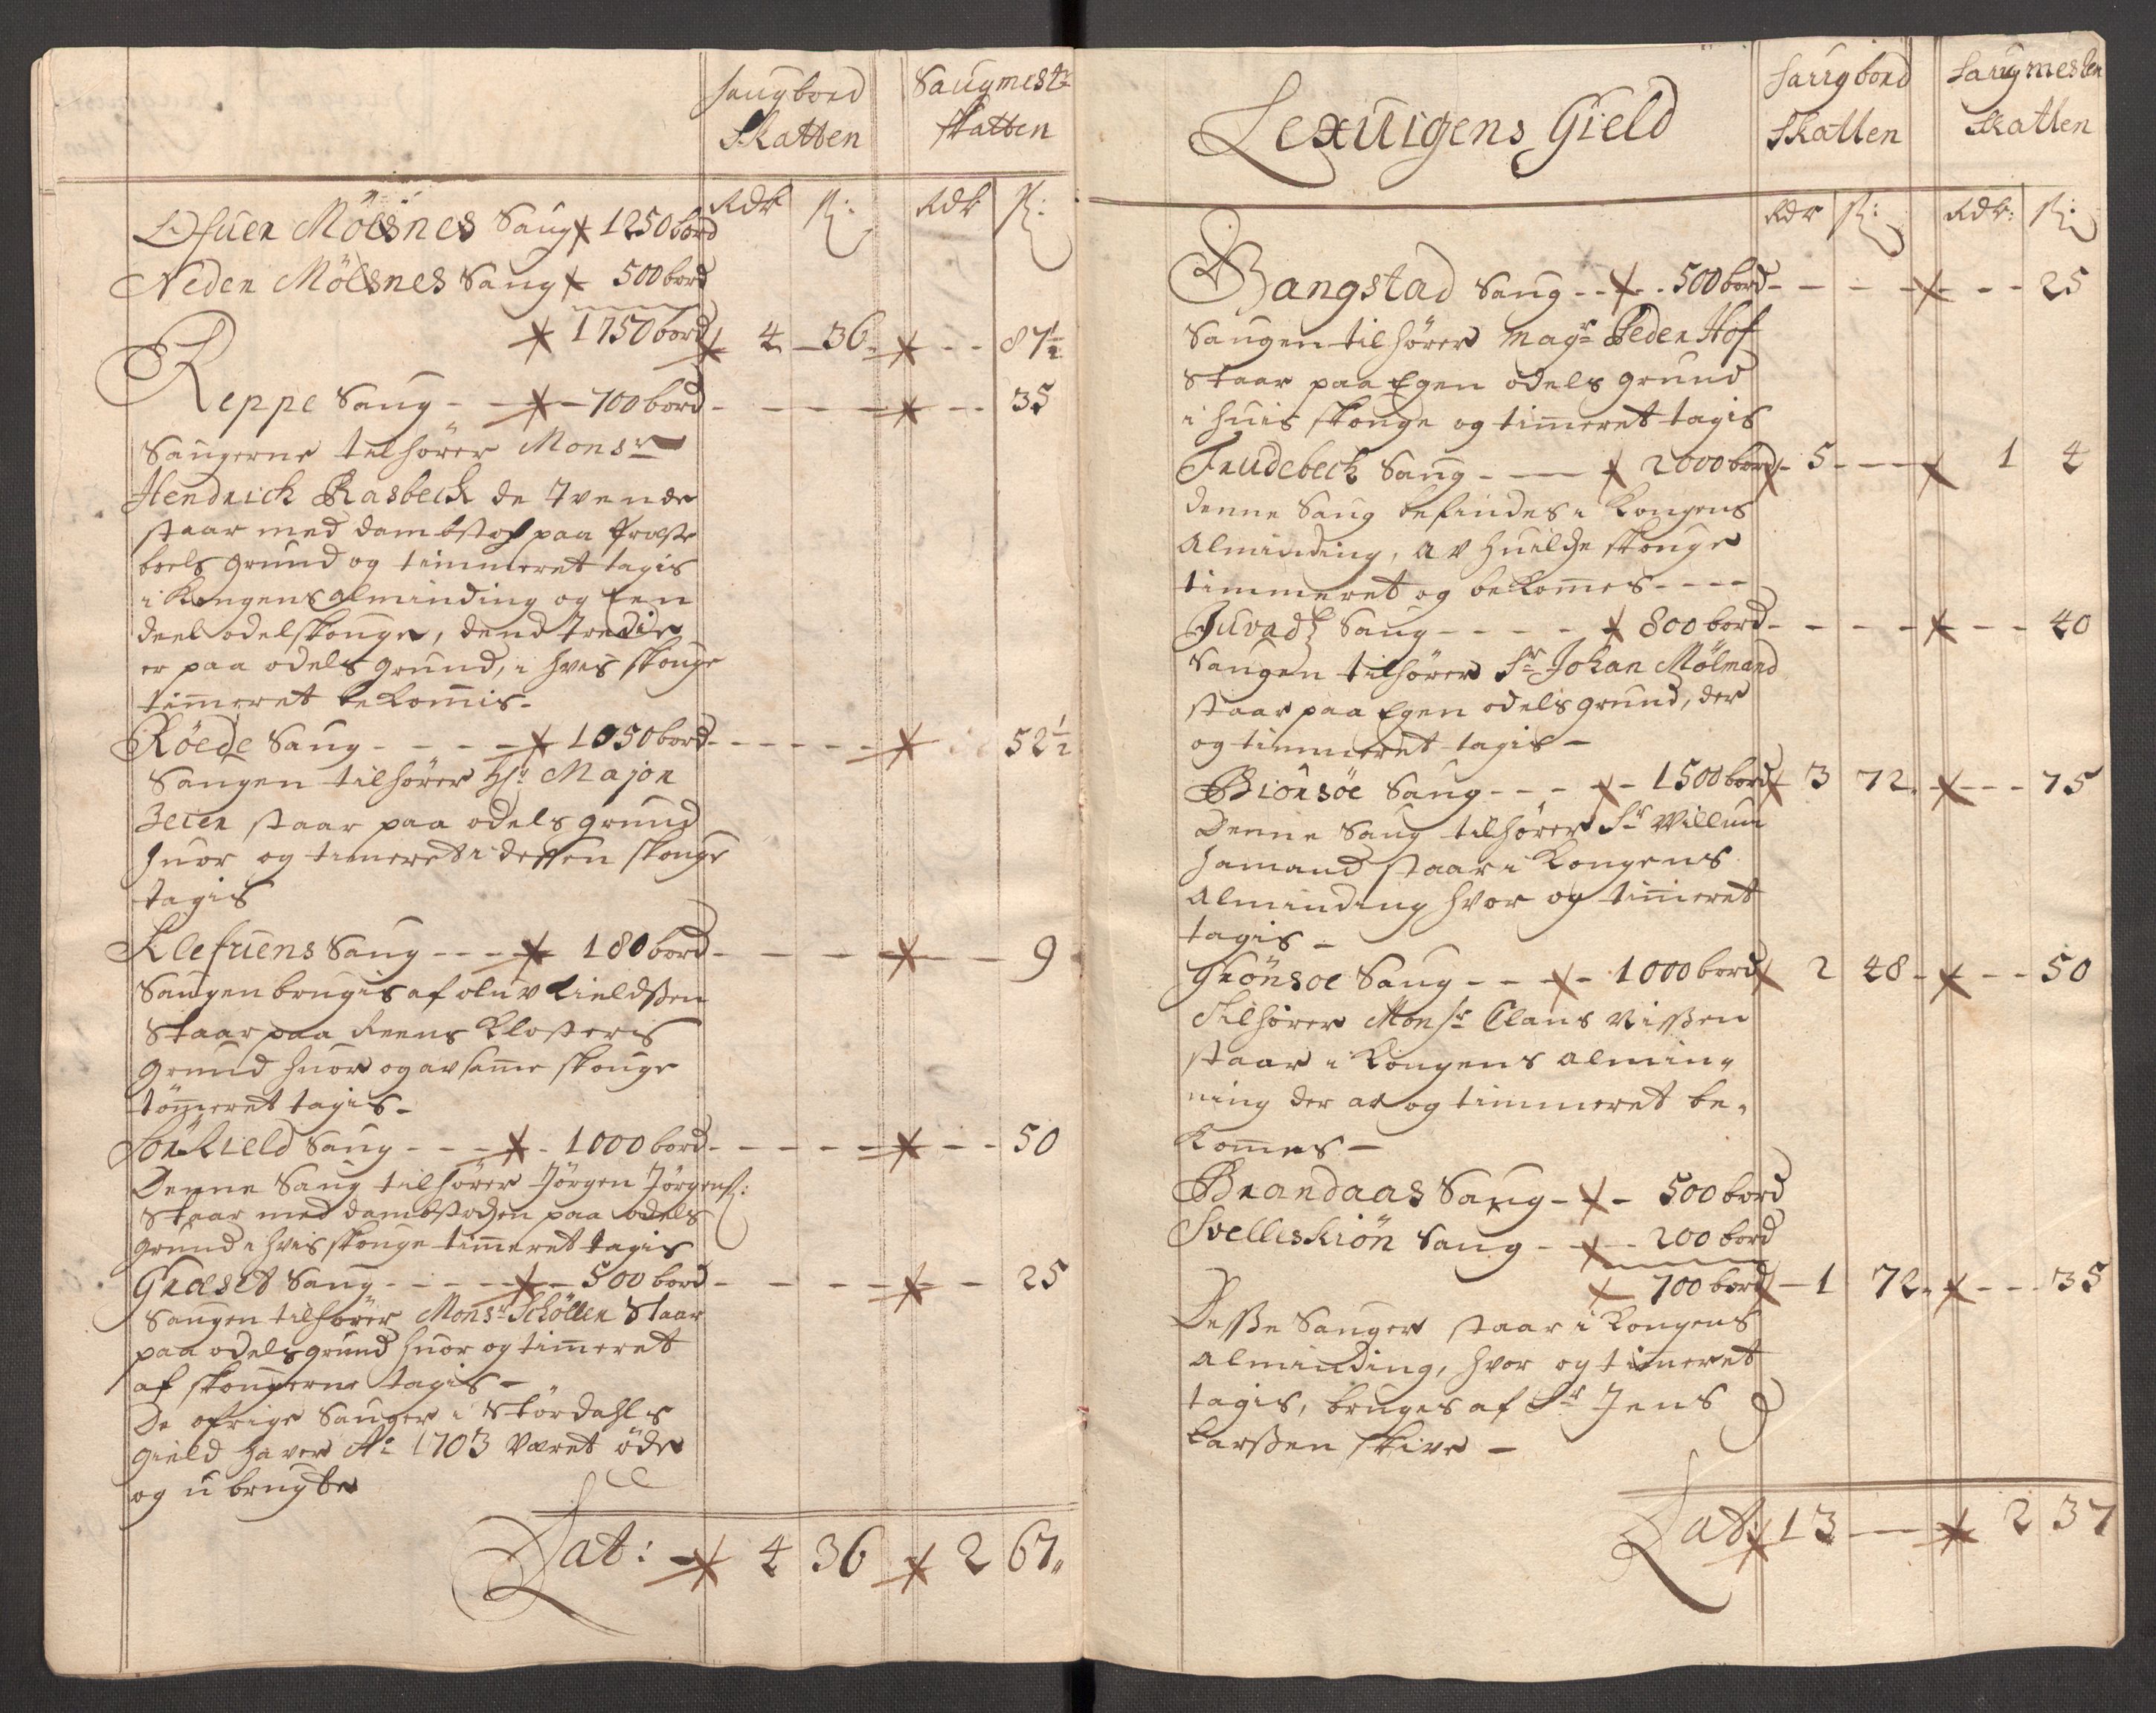 Saugbord Saugmest:
Skatten Skatten
Rdr ſk: Rdr ſk:
Ofuer Mölsnes Saug 1250 bord
Neden Mölsnes Saug 500 bord
1750 bord 4 - 36 - - 87½
Reppe Saug - - 700 bord - - - - - - 35
Saugerne tilhører Monsr
Hendrich Rasbech de Tvende
staar med dambstoch paa
boels grund og timmeret tagis
i Kongens alminding og Een
deel odelskouge, dend Tredie
er paa odels grund, i hvis skouge
tim̄eret bekom̄is -
Röede Saug - - - - 1050 bord - - - - - 52½
Saugen tilhører Hr Major
staar paa odels grund
huor og tim̄eret i desen skouge
tagis
Klefuens Saug - - - 180 bord - - - - - - 9
Saugen brugis af oluv Kieldßen
Staar paa Reens Klosteris
grund huor og av sam̄e skouge
töm̄eret tagis -
Sönkield Saug - - - 1000 bord - - - - - - - 50
Denne Saug tilhører Jörgen Jörgenſ:
Staar med dambstochen paa odels
grund i hvis skouge tim̄eret tagis
Græset Saug - - - - - 500 bord - - - - - - 25
Saugen tilhører Monsr Schöller Staar
paa odels grund huor og tim̄eret
af skougerne tagis -
De ofrige Sauger i Stördahls
gield haver Ao 1703 Været öde
og u brugte
Lat: 4 36 2 67„
Lexuigens Gield
Saugbord Saugmester
Skatten Skatten
Rdr ſk: Rdr: ſk:
Bangstad Saug - - - - 500 bord - - - - - - - 25
Saugen tilhører Magr Peder Hof
Staar paa Egen odels grund
i huis skouge og tim̄eret tagis
Trudebech Saug - - - 2000 bord - 5 - - - 1 4
denne Saug befindes i Kongens
Alminding, av huilche skouge
timmeret og bekom̄es - - - -
Saug - - - - - 800 bord - - - - - - - 40
Saugen tilhører Sr Johan Mölmand
staar paa Egen odels grund, der
og timmeret tagis -
Biörsöe Saug - - - - - 1500 bord 3 72 - - - - 75
Denne Saug tilhører Sr Willum
hamand staar i Kongens
Alminding hvor og tim̄eret
tagis -
Grönsoe Saug - - - - 1000 bord 2 48 - - - 50
Tilhører Monsr Claus Nißen
staar i Kongens almin„
ning der av og timmeret be„
kom̄es -
Brandaas Saug - - 500 bord
Svelleskiön Saug - - - 200 bord
700 bord - 1 72 - - - 35
Desße Sauger staar i Kongens
Alminding, hvor og tim̄eret
tagis, bruges af Sr Jens
Larßen skive -
Lat: 13 - - 2 37